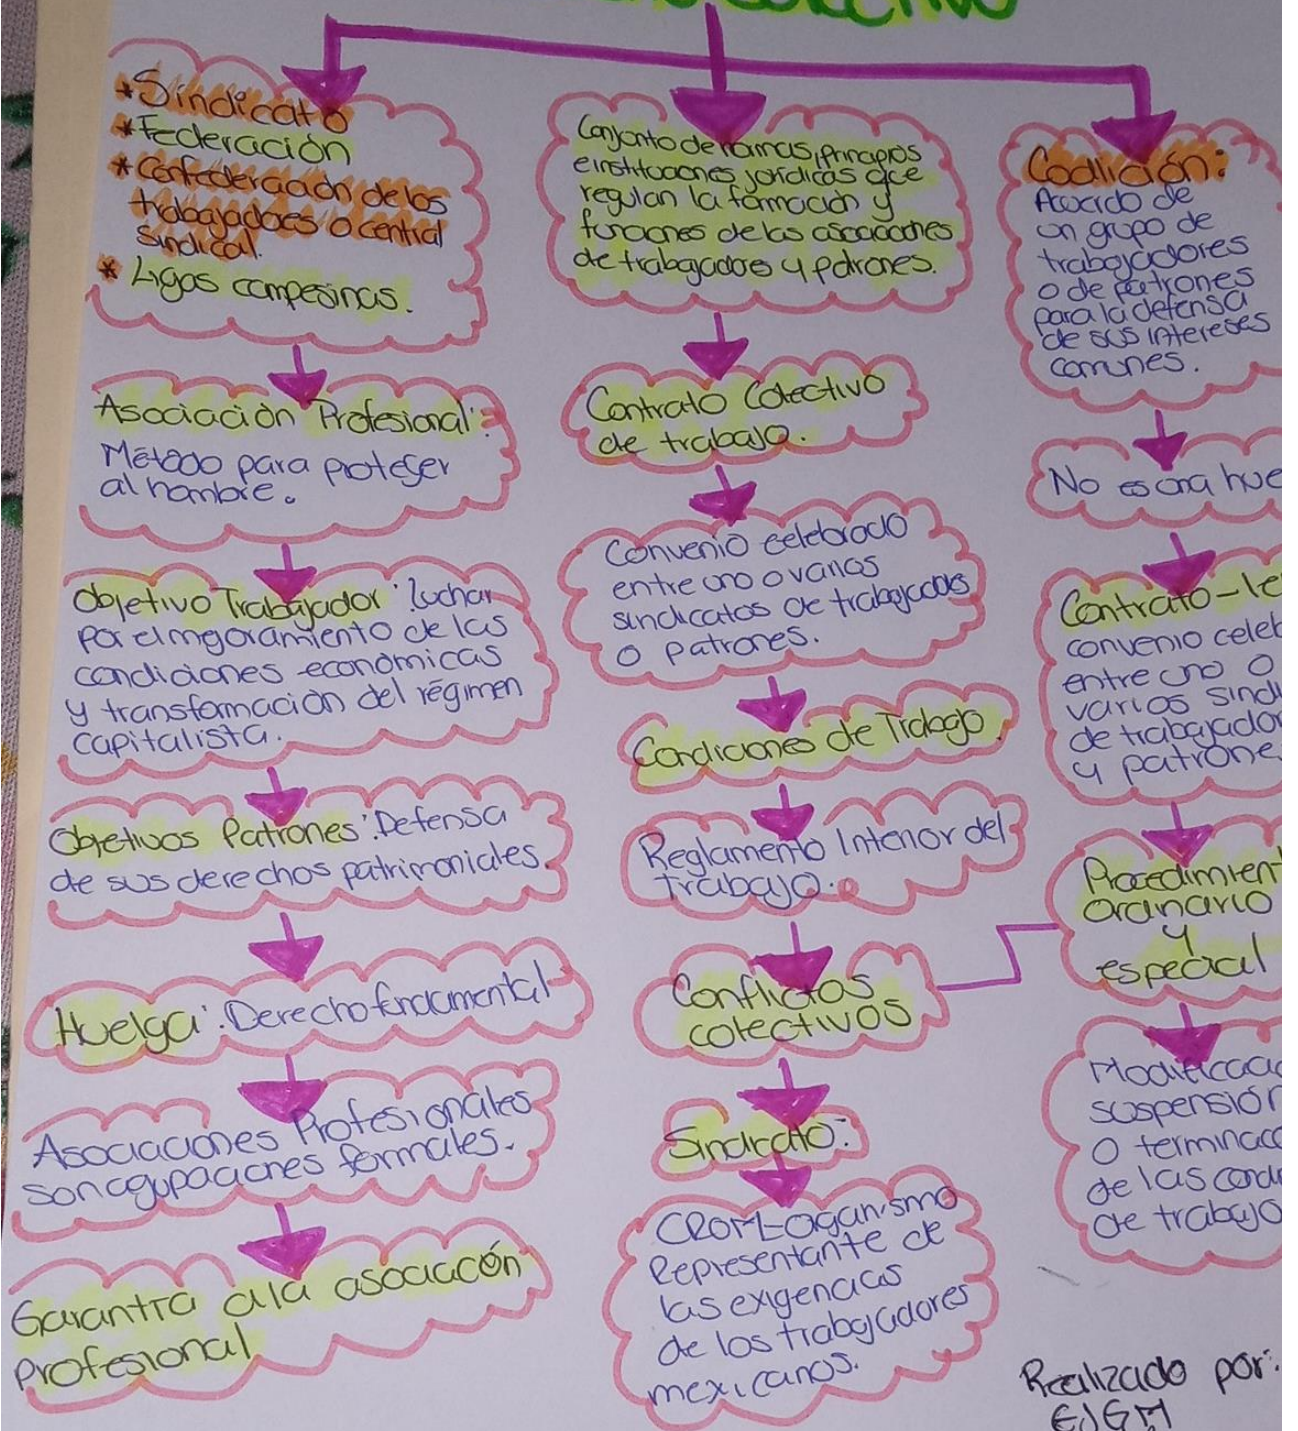 COLECTIVO
*Sindicato
*Federación
*Confederación de los
trabajadores o central
sindical.
* Ligas campesinas.
Asociación Profesional:
Método para proteger
al hombre.
Objetivo Trabajador: luchar
por el mejoramiento de las
condiciones económicas
y transformación del régimen
capitalista.
Objetivos Patrones: Defensa
de sus derechos patrimoniales.
Huelga: Derecho fundamental
Asociaciones Profesionales
son agupaciones formales.
Garantía a la asociacón
profesional
Conjunto de normas, principios
e instituciones jurídicas que
regulan la formación y
funciones de las asociaciones
de trabajadores y patrones.
Contrato Colectivo
de trabajo.
Convenio celebrado
entre uno o varios
sindicatos de trabajadores
o patrones.
Condiciones de Trabajo.
Reglamento Interior del
trabajo.
Conflictos
colectivos
Sindicato:
CROM-Organismo
Representante de
las exigencias
de los trabajadores
mexicanos.
Coalición:
Acuerdo de
un grupo de
trabajadores
o de patrones
para la defensa
de sus intereses
comunes.
No es una hue
Contrato-le
convenio celeb
entre uno o
varios sindi
de trabajador
y patrone
Procedimient
Ordinario
y
especial
Modificac
suspensión
o terminac
de las cond
de trabajo
Realizado por:
EJGM